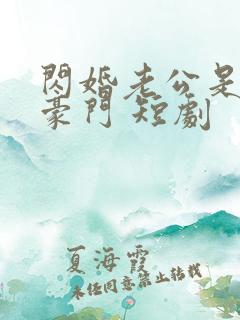 閃婚老公是
豪門 短劇
夏海霞
未经同意禁止转载